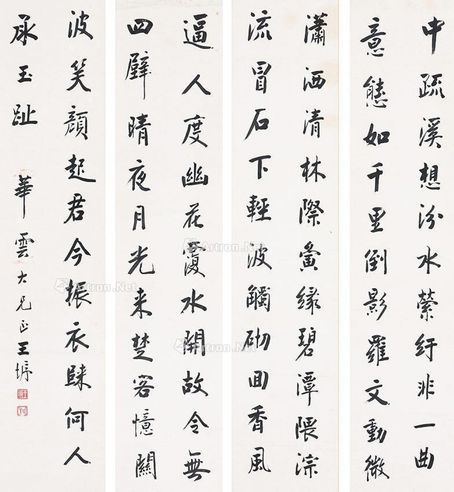 中疏溪想汾水縈紆非一曲
意態如千里倒影羅文動微
瀟洒清林際夤緣碧潭隈淙
流冒石下輕波觸砌回香風
逼人度幽花覆水開故令無
四壁晴夜月光来楚客憶關
波笑顏起君今振衣歸何人
承玉趾 華雲大兄正 王
Artron.Net
Artron.Net
Artron.Net